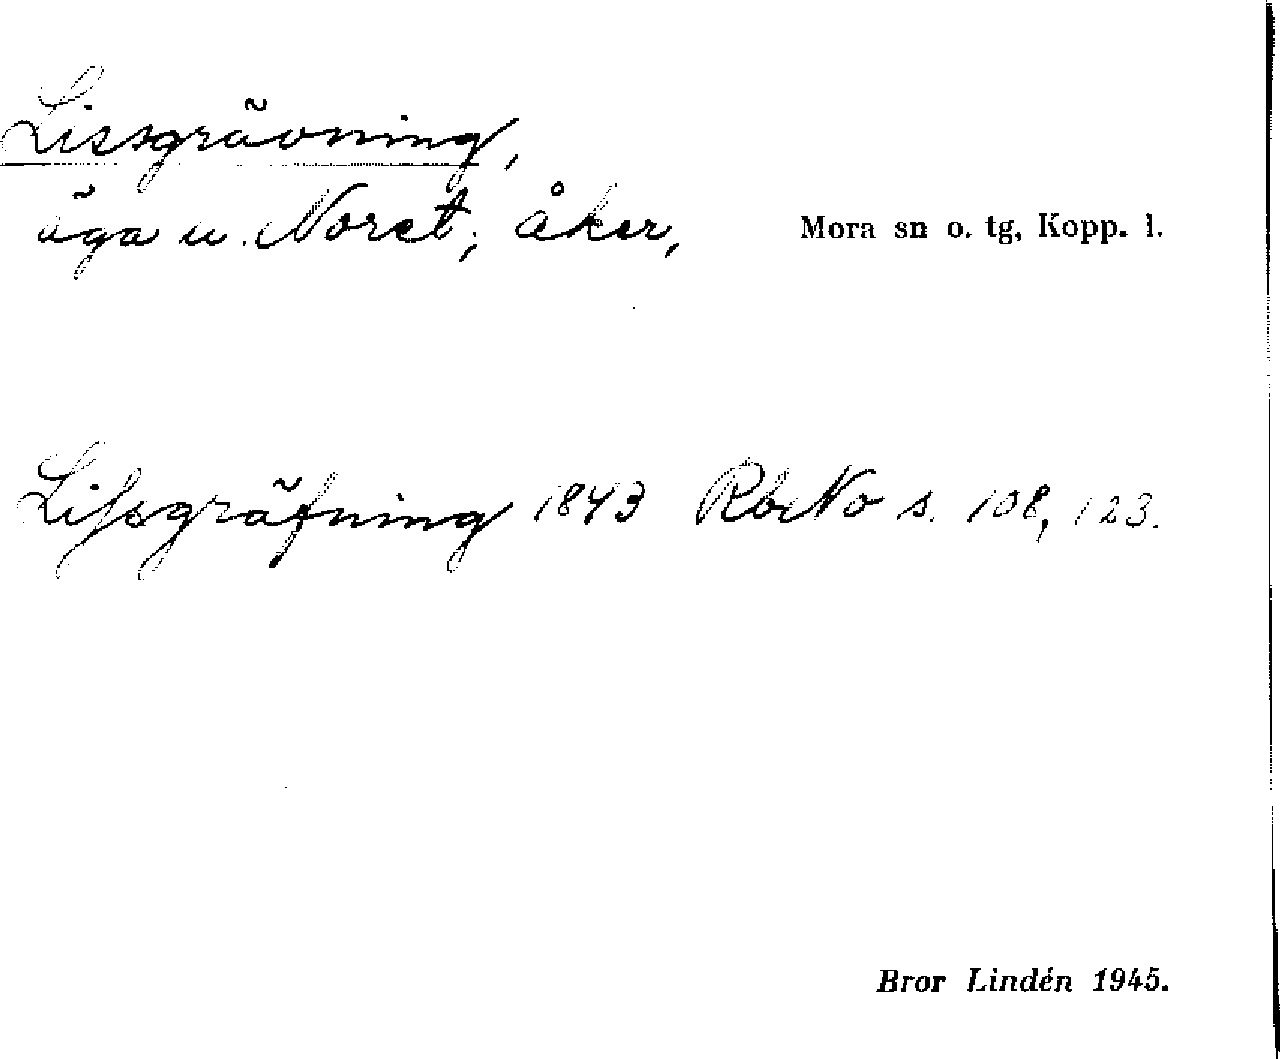 Lissgrävning,
äga u. Noret; åker,
Mora sn o. tg, Kopp. l.
Lissgräfning 1843 RbNo s. 108, 123.
Bror Lindén 1945.